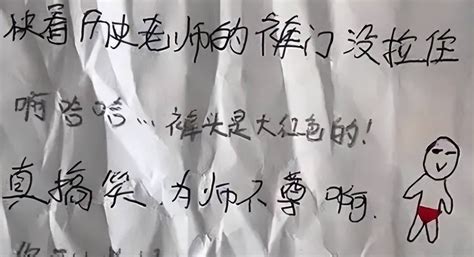 快看历史老师的裤门没拉住
啊哈哈...裤头是大红色的!
真搞笑.为师不尊啊.